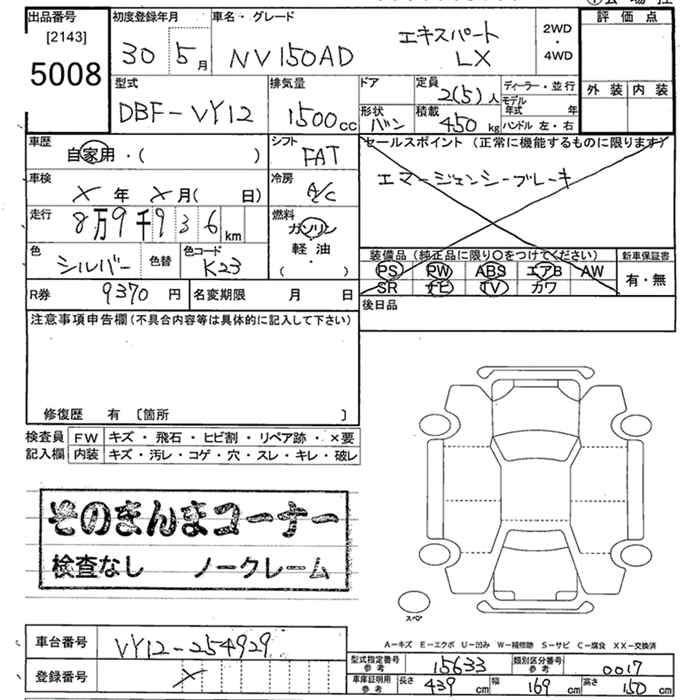 出品番号 [2143] 5008
初度登録年月 30 5月
車名・グレード NV150AD エキスパート LX
2WD・4WD
評価点
外装 内装
型式 DBF-VY12
排気量 1500cc
ドア
形状 バン
定員 2(5)人
積載 450kg
ディーラー・並行
モデル年式 年
ハンドル 左・右
車歴 自家用・( )
シフト FAT
セールスポイント (正常に機能するものに限ります)
エマージェンシーブレーキ
車検 × 年 × 月( 日)
冷房 A/C
走行 8万9千936km
燃料 ガソリン・軽油・( )
色 シルバー 色替
色コード K23
装備品 (純正品に限り〇をつけてください)
新車保証書
PS PW ABS エアB AW
有・無
SR ナビ TV カワ
R券 9370円
名変期限 月 日
後日品
注意事項申告欄(不具合内容等は具体的に記入して下さい)
修復歴 有 〔箇所 〕
検査員記入欄
FW キズ・飛石・ヒビ割・リペア跡・×要
内装 キズ・汚レ・コゲ・穴・スレ・キレ・破レ
そのまんまコーナー
検査なし ノークレーム
スペア
A-キズ E-エクボ U-凹み W-補修跡 S-サビ C-腐食 XX-交換済
車台番号 VY12-254929
登録番号 ×
型式指定番号 参考 15633
類別区分番号 参考 0017
車庫証明用 参考 長さ 439cm 幅 169cm 高さ 150cm